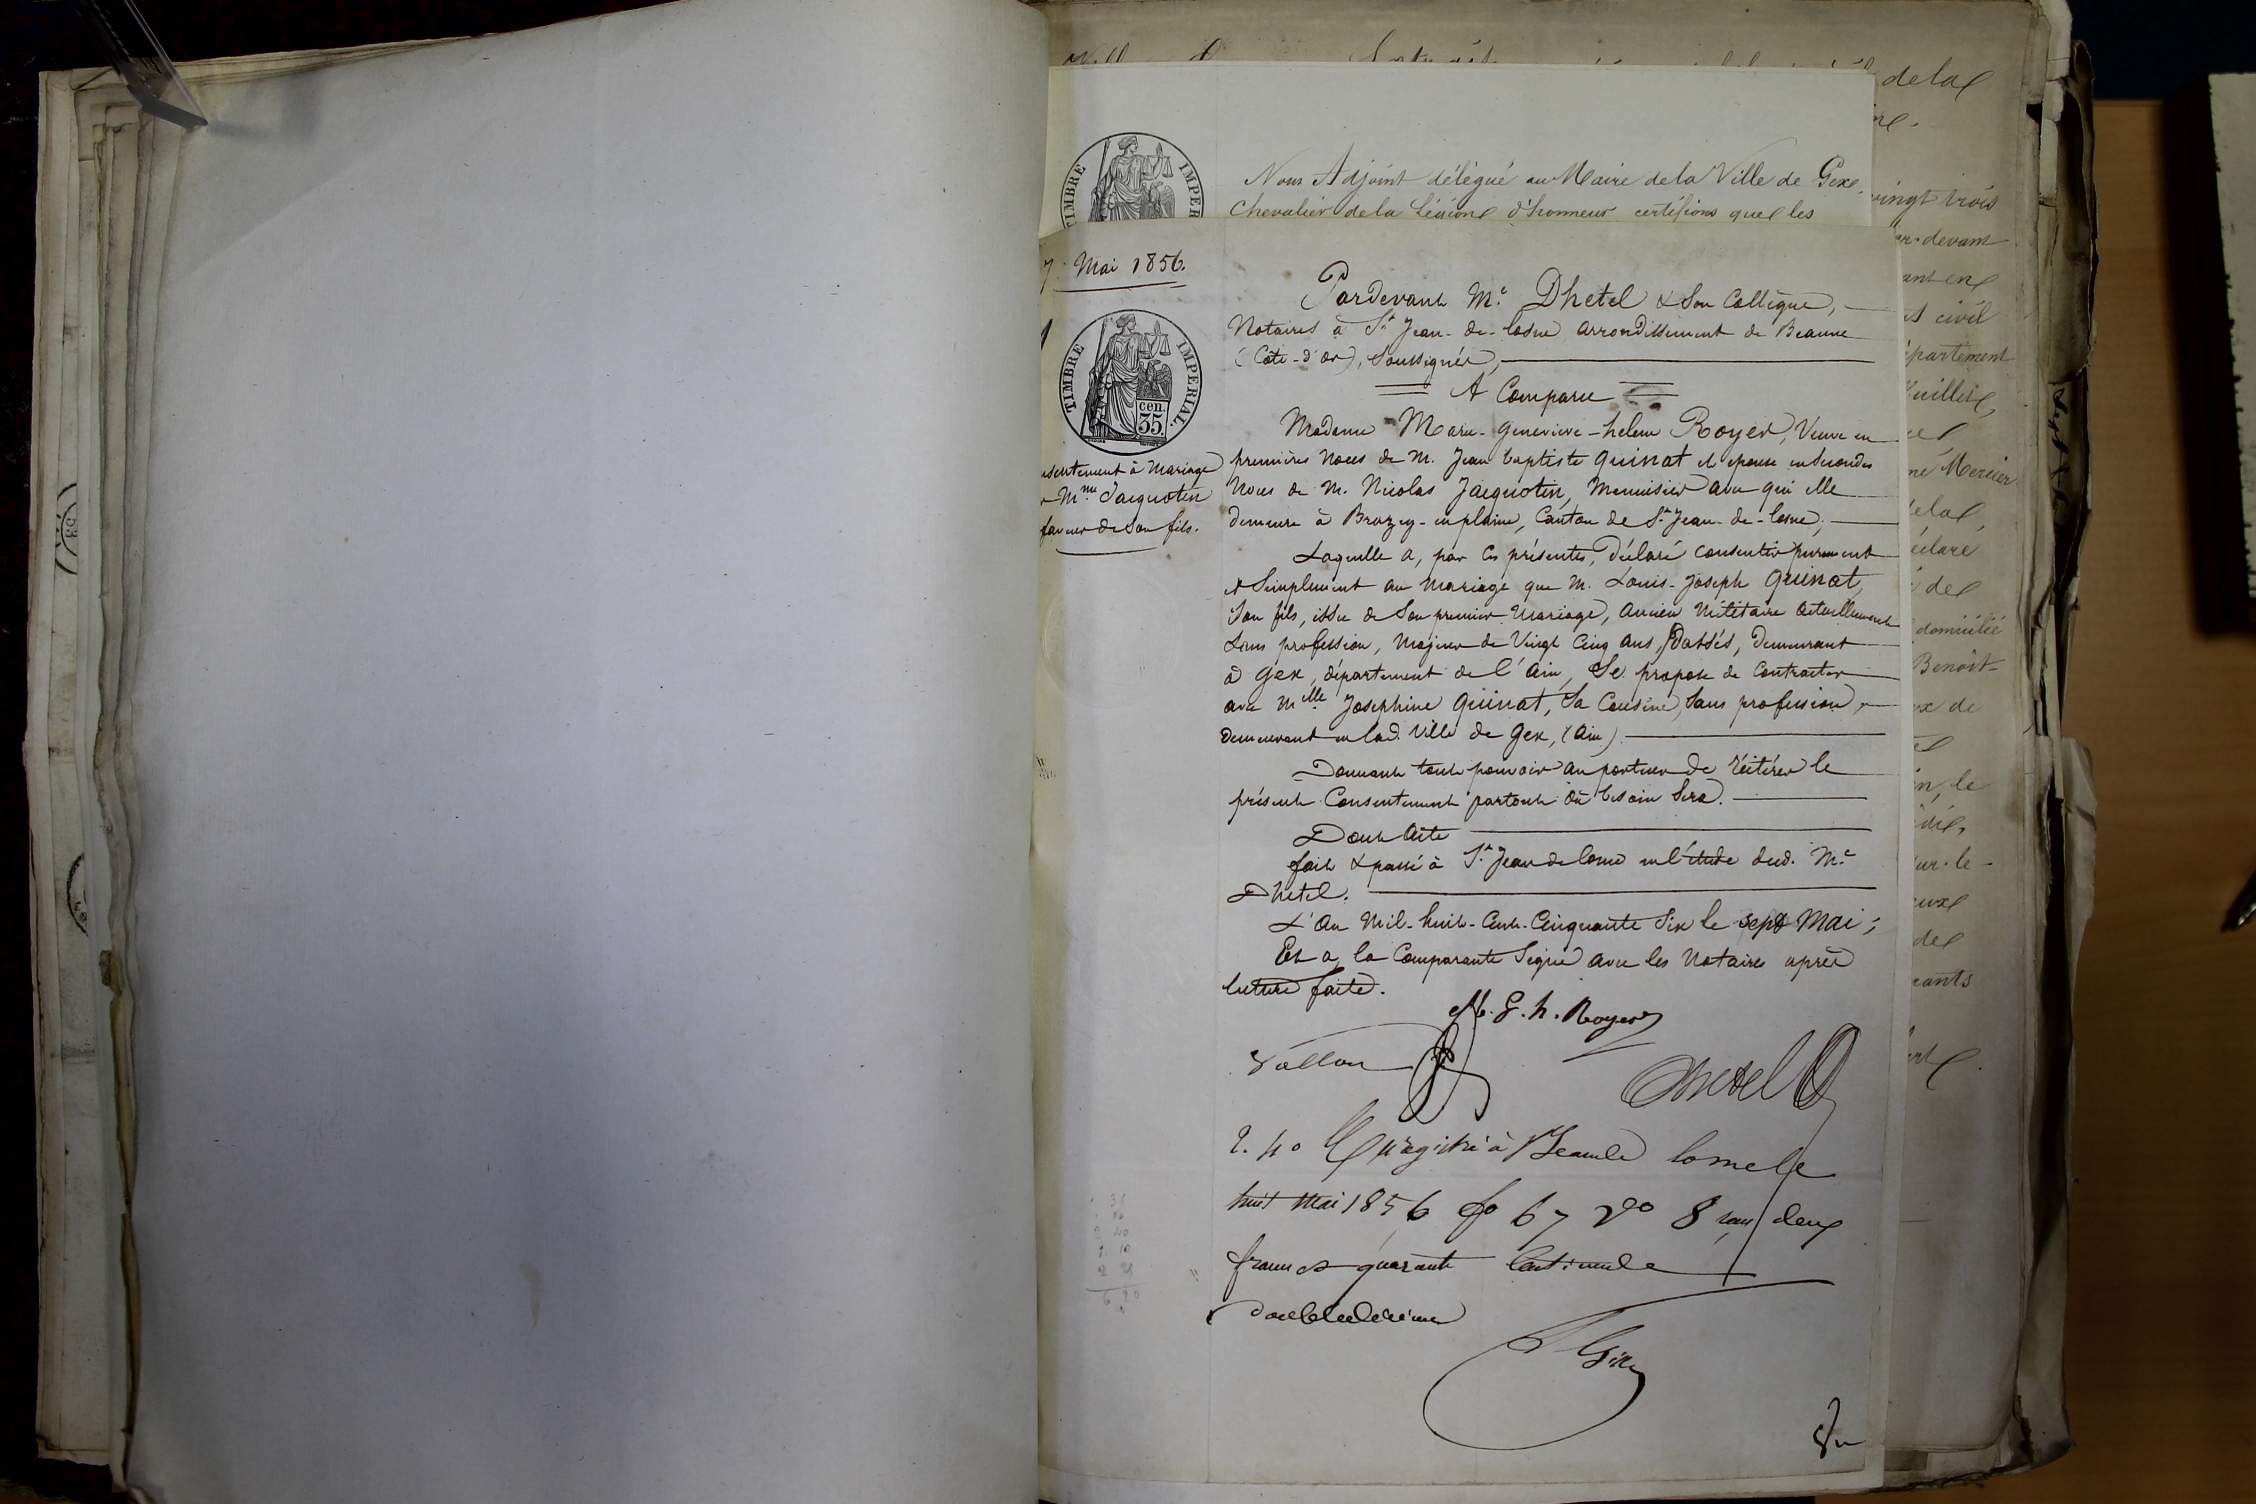 de la
Nous Adjoint délégué au Maire de la Ville de Gex,
Chevalier de la Légion d'honneur certifions que les
TIMBRE IMPER
vingt trois
devant
civil
département
Mercier
déclaré
domicilié
Benoît
7 Mai 1856.
TIMBRE IMPERIAL.
cen.
35.
sentement à Mariage
Mme Jacquotin
faveur de son fils.
Pardevant Me. Dhetel & Son Collègue,
Notaires à St. Jean-de-losne arrondissement de Beaune
(Côte-d'or), Soussignés,
A Comparu
Madame Marie-Geneviève-helène Royer, Veuve en
premières Noces de M. Jean baptiste Guinat et épouse en Secondes
Noces de M. Nicolas Jacquotin, Menuisier avec qui elle
demeure à Brazey-en plaine, Canton de St. Jean-de-losne;
Laquelle a, par Ces présentes, Déclaré consentir purement
et Simplement au Mariage que M. Louis-Joseph Guinat,
Son fils, issu de Son premier Mariage, ancien Militaire actuellement
Sans profession, Majeur de Vingt Cinq ans, passés, Demeurant
à Gex, département de l'Ain, Se propose de Contracter
avec Melle Joséphine Guinat, Sa Cousine, Sans profession,
Demeurant en lad. Ville de Gex, (Ain)
Donnant tout pouvoir au porteur de réitérer le
présent Consentement partout où besoin Sera.
Dont Acte
fait & passé à St. Jean de losne en l'étude dud. Me.
Dhetel.
L'An Mil-huit-Cent-Cinquante Six le sept Mai;
Et a, la Comparante Signé avec les Notaires après
lecture faite.
M. G. h. Royer
Dhetel
Enregistré à St Jean de Losne le
huit Mai 1856 fo 67 Vo 8 deux
francs quarante Centimes
double décime